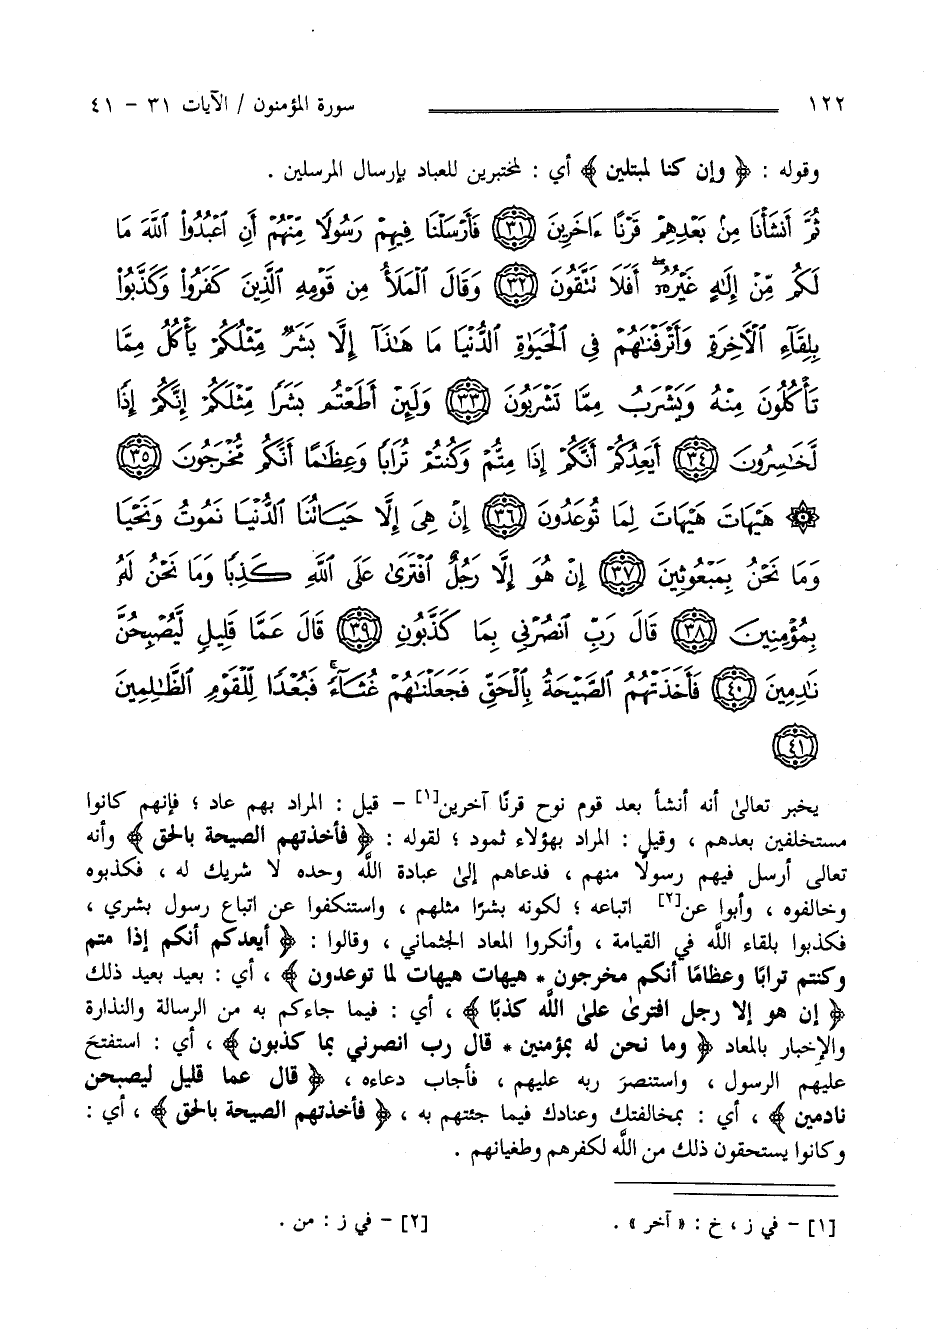 ١٢٢ سورة المؤمنون / الآيات ٣١ - ٤١
وقوله : ﴿ وإن كنا لمبتلين ﴾ أي : لمختبرين للعباد بإرسال المرسلين .
ثُمَّ أَنشَأْنَا مِنۢ بَعْدِهِمْ قَرْنًا ءَاخَرِينَ ﴿٣١﴾ فَأَرْسَلْنَا فِيهِمْ رَسُولًا مِّنْهُمْ أَنِ ٱعْبُدُوا۟ ٱللَّهَ مَا
لَكُم مِّنْ إِلَـٰهٍ غَيْرُهُۥٓ ۖ أَفَلَا تَتَّقُونَ ﴿٣٢﴾ وَقَالَ ٱلْمَلَأُ مِن قَوْمِهِ ٱلَّذِينَ كَفَرُوا۟ وَكَذَّبُوا۟
بِلِقَآءِ ٱلْـَٔاخِرَةِ وَأَتْرَفْنَـٰهُمْ فِى ٱلْحَيَوٰةِ ٱلدُّنْيَا مَا هَـٰذَآ إِلَّا بَشَرٌ مِّثْلُكُمْ يَأْكُلُ مِمَّا
تَأْكُلُونَ مِنْهُ وَيَشْرَبُ مِمَّا تَشْرَبُونَ ﴿٣٣﴾ وَلَئِنْ أَطَعْتُم بَشَرًا مِّثْلَكُمْ إِنَّكُمْ إِذًا
لَّخَـٰسِرُونَ ﴿٣٤﴾ أَيَعِدُكُمْ أَنَّكُمْ إِذَا مِتُّمْ وَكُنتُمْ تُرَابًا وَعِظَـٰمًا أَنَّكُم مُّخْرَجُونَ ﴿٣٥﴾
۞ هَيْهَاتَ هَيْهَاتَ لِمَا تُوعَدُونَ ﴿٣٦﴾ إِنْ هِىَ إِلَّا حَيَاتُنَا ٱلدُّنْيَا نَمُوتُ وَنَحْيَا
وَمَا نَحْنُ بِمَبْعُوثِينَ ﴿٣٧﴾ إِنْ هُوَ إِلَّا رَجُلٌ ٱفْتَرَىٰ عَلَى ٱللَّهِ كَذِبًا وَمَا نَحْنُ لَهُۥ
بِمُؤْمِنِينَ ﴿٣٨﴾ قَالَ رَبِّ ٱنصُرْنِى بِمَا كَذَّبُونِ ﴿٣٩﴾ قَالَ عَمَّا قَلِيلٍ لَّيُصْبِحُنَّ
نَـٰدِمِينَ ﴿٤٠﴾ فَأَخَذَتْهُمُ ٱلصَّيْحَةُ بِٱلْحَقِّ فَجَعَلْنَـٰهُمْ غُثَآءً ۚ فَبُعْدًا لِّلْقَوْمِ ٱلظَّـٰلِمِينَ
﴿٤١﴾
يخبر تعالىٰ أنه أنشأ بعد قوم نوح قرنًا آخرين[١] - قيل : المراد بهم عاد ؛ فإنهم كانوا
مستخلفين بعدهم ، وقيل : المراد بهؤلاء ثمود ؛ لقوله : ﴿ فأخذتهم الصيحة بالحق ﴾ وأنه
تعالى أرسل فيهم رسولًا منهم ، فدعاهم إلىٰ عبادة اللَّه وحده لا شريك له ، فكذبوه
وخالفوه ، وأبوا عن[٢] اتباعه ؛ لكونه بشرًا مثلهم ، واستنكفوا عن اتباع رسول بشري ،
فكذبوا بلقاء اللَّه في القيامة ، وأنكروا المعاد الجثماني ، وقالوا : ﴿ أيعدكم أنكم إذا متم
وكنتم ترابًا وعظامًا أنكم مخرجون * هيهات هيهات لما توعدون ﴾ ، أي : بعيد بعيد ذلك
﴿ إن هو إلا رجل افترىٰ علىٰ اللَّه كذبًا ﴾ ، أي : فيما جاءكم به من الرسالة والنذارة
والإخبار بالمعاد ﴿ وما نحن له بمؤمنين * قال رب انصرني بما كذبون ﴾ ، أي : استفتحَ
عليهم الرسول ، واستنصرَ ربه عليهم ، فأجاب دعاءه ، ﴿ قال عما قليل ليصبحن
نادمين ﴾ ، أي : بمخالفتك وعنادك فيما جئتهم به ، ﴿ فأخذتهم الصيحة بالحق ﴾ ، أي :
وكانوا يستحقون ذلك من اللَّه لكفرهم وطغيانهم .
[١] - في ز ، خ : « آخر » . [٢] - في ز : من .